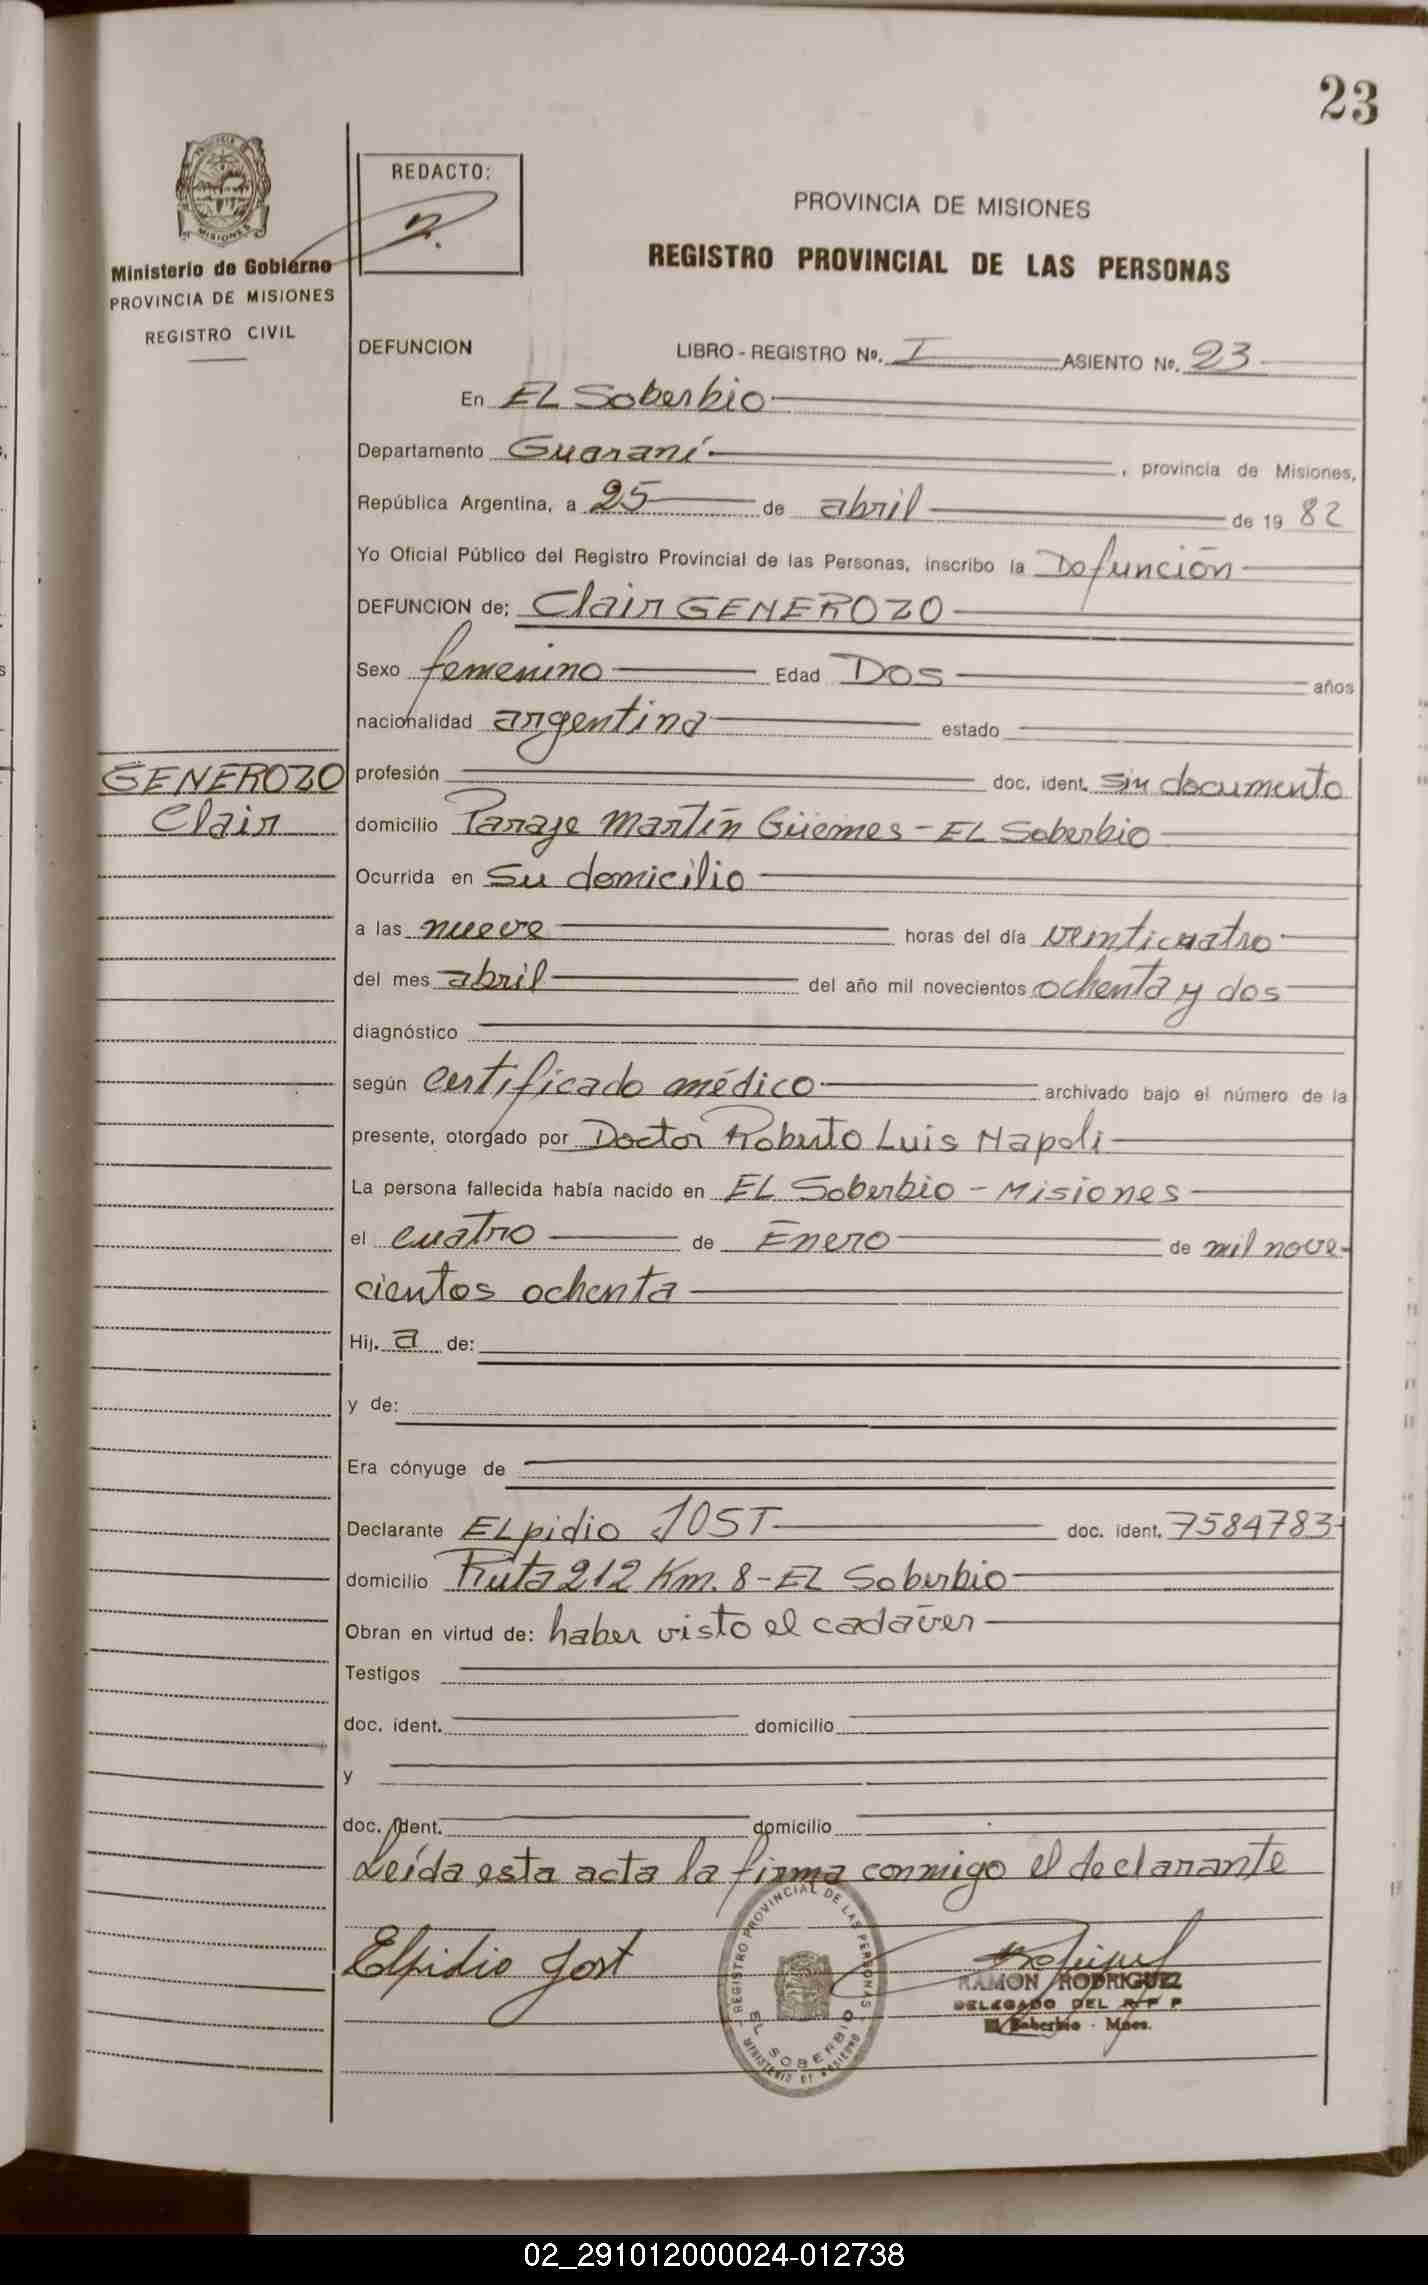 23
PROVINCIA DE MISIONES
REGISTRO PROVINCIAL DE LAS PERSONAS
REDACTO:
MISIONES
Ministerio de Gobierno
PROVINCIA DE MISIONES
REGISTRO CIVIL
DEFUNCION LIBRO - REGISTRO Nº. I ASIENTO Nº. 23
En EL Soberbio
Departamento Guaraní , provincia de Misiones,
República Argentina, a 25 de abril de 19 82
Yo Oficial Público del Registro Provincial de las Personas, inscribo la Defunción
DEFUNCION de: Clair GENEROZO
Sexo femenino Edad Dos años
nacionalidad argentina estado
GENEROZO
Clair
profesión doc. ident. sin documento
domicilio Paraje Martín Güemes - EL Soberbio
Ocurrida en Su domicilio
a las nueve horas del día veinticuatro
del mes abril del año mil novecientos ochenta y dos
diagnóstico
según certificado médico archivado bajo el número de la
presente, otorgado por Doctor Roberto Luis Napoli
La persona fallecida había nacido en EL Soberbio - Misiones
el cuatro de Enero de mil nove-
cientos ochenta
Hij. a de:
y de:
Era cónyuge de
Declarante ELpidio JOST doc. ident. 7584783
domicilio Ruta 212 Km. 8 - EL Soberbio
Obran en virtud de: haber visto el cadáver
Testigos
doc. ident. domicilio
y
doc. ident. domicilio
Leída esta acta la firma conmigo el declarante
Elpidio Jost
REGISTRO PROVINCIAL DE LAS PERSONAS
EL SOBERBIO
MINISTERIO DE GOBIERNO
RAMON RODRIGUEZ
DELEGADO DEL R P P
El Soberbio - Mnes.
02_291012000024-012738